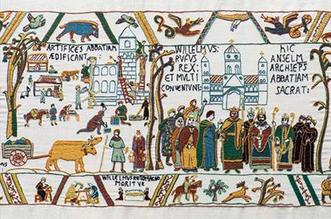 ARTIFICES ABBATIAM
ÆDIFICANT
WILLELMVS:
RVFVS
REX:
ET MVLTI
CONVENIVNT
HIC
ANSELM
ARCHIEPS
ABBATIAM
SACRAT:
WILLELMVS
MORITVR